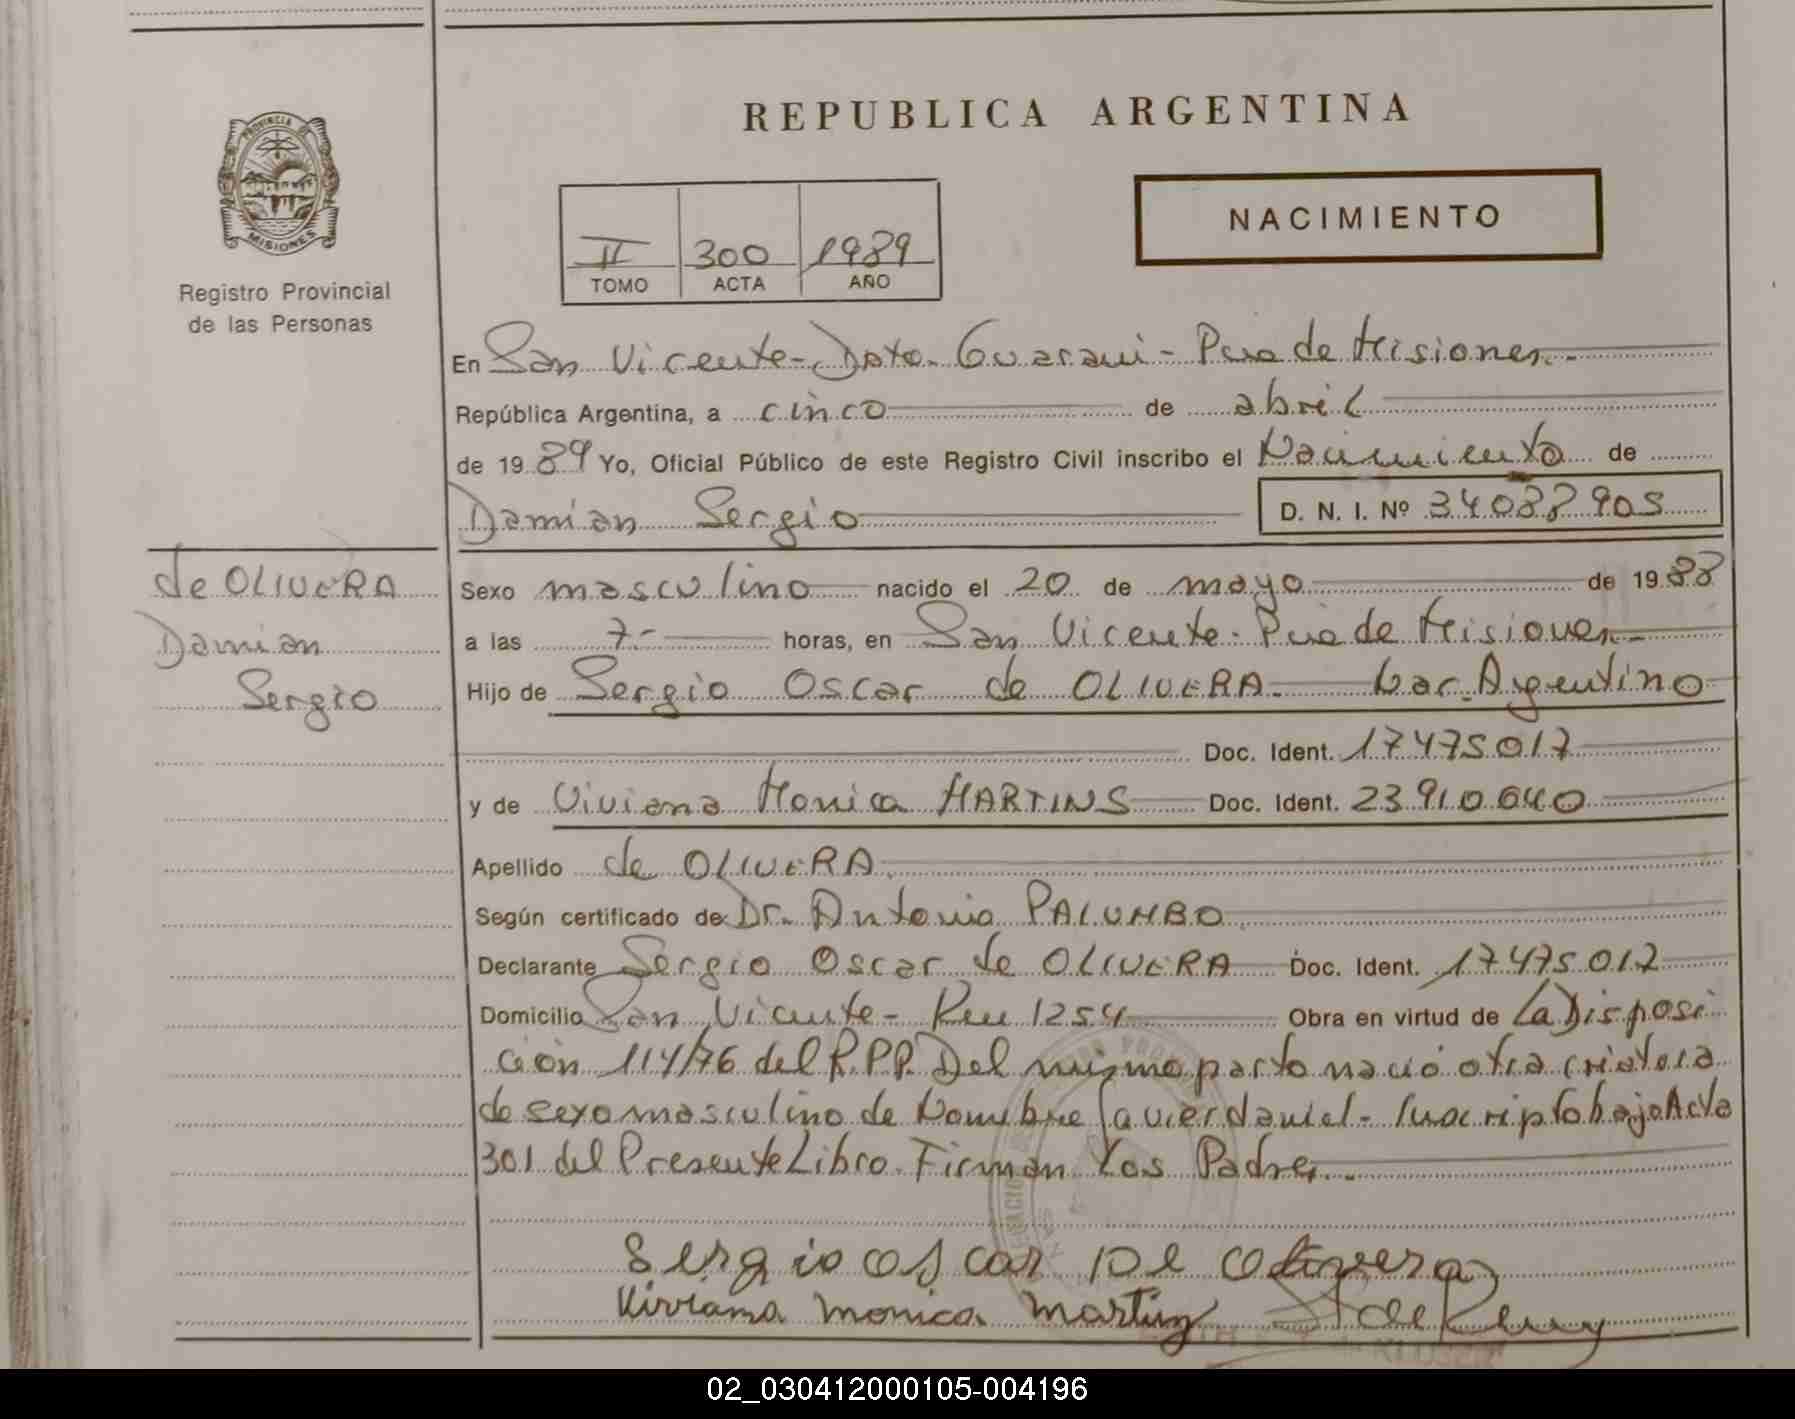 REPUBLICA ARGENTINA
PROVINCIA DE
MISIONES
Registro Provincial
de las Personas
NACIMIENTO
II 300 1989
TOMO ACTA AÑO
En San Vicente - Dpto. Guarani - Pcia de Misiones.-
República Argentina, a cinco de abril
de 1989 Yo, Oficial Público de este Registro Civil inscribo el Nacimiento de
Damian Sergio D. N. I. Nº 34088905
de OLIVERA
Damian
Sergio
Sexo masculino nacido el 20 de mayo de 1988
a las 7- horas, en San Vicente - Pcia de Misiones-
Hijo de Sergio Oscar de OLIVERA- Argentino
Doc. Ident. 17475017
y de Viviana Monica MARTINS Doc. Ident. 23910640
Apellido de OLIVERA
Según certificado de Dr. Antonio PALUMBO
Declarante Sergio Oscar de OLIVERA Doc. Ident. 17475017
Domicilio San Vicente - Km 1254 Obra en virtud de La Disposi
ción 114/76 del R.P.P. Del mismo parto nació otra criatura
de sexo masculino de Nombre Javier daniel - Inscripto bajo Acta
301 del Presente Libro. Firman Los Padres.-
Sergio oscar De olivera
Viviana monica martins
02_030412000105-004196